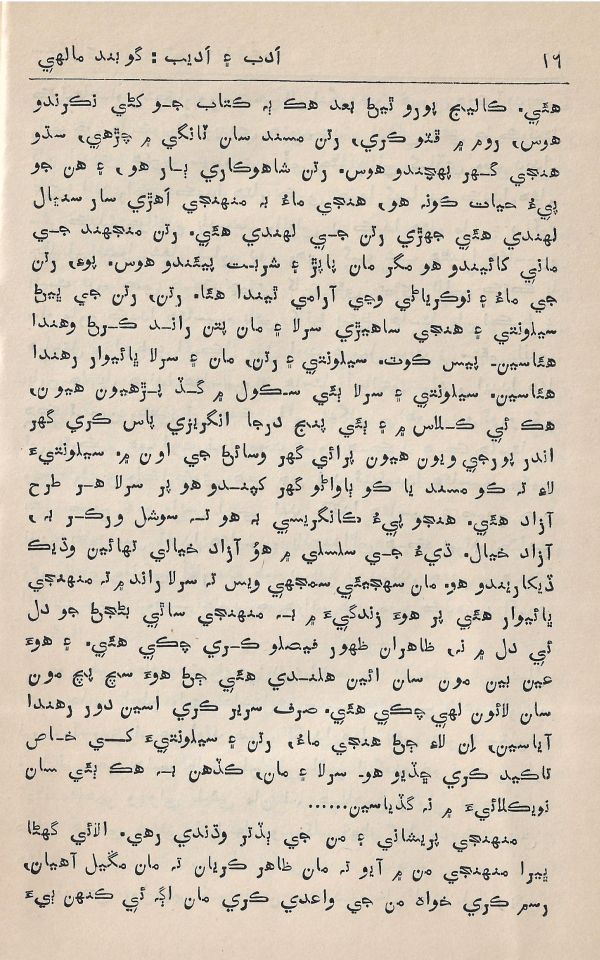 ١٦ ادب ۽ اديب: گوبند مالهي
هئي. ڪاليج پورو ٿيڻ بعد هڪ ٻہ ڪتاب جو کڻي نڪرندو
هوس، روم ۾ ڦٽو ڪري، رتن مسند سان ٽانگي ۾ چڙهي، سڌو
هنجي گهر پهچندو هوس. رتن شاهوڪاري ٻار هو، ۽ هن جو
پيءُ حيات ڪونہ هو، هنجي ماءُ بہ منهنجي اهڙي سار سنڀال
لهندي هئي جهڙي رتن جي لهندي هئي. رتن منجهند جي
ماني کائيندو هو مگر مان پاپڙ ۽ شربت پيئندو هوس. پوءِ، رتن
جي ماءُ ۽ نوڪرياڻي وڃي آرامي ٿيندا هئا. رتن، رتن جي ڀيڻ
سيلونتي ۽ هنجي ساهيڙي سرلا ۽ مان پتن راند ڪرڻ وهندا
هئاسين- پيس ڪوٽ. سيلونتي ۽ رتن، مان ۽ سرلا ڀائيوار رهندا
هئاسين. سيلونتي ۽ سرلا ٻئي سڪول ۾ گڏ پڙهيون هيون،
هڪ ئي ڪلاس ۾ ۽ ٻئي پنج درجا انگريزي پاس ڪري گهر
اندر پورجي ويون هيون پرائي گهر وسائڻ جي اون ۾. سيلونتيءَ
لاءِ تہ ڪو مسند يا ڪو ٻاواڻو گهر کپندو هو پر سرلا هر طرح
آزاد هئي. هنجو پيءُ ڪانگريسي بہ هو تہ سوشل ورڪر بہ،
آزاد خيال. ڌيءُ جي سلسلي ۾ هوُ آزاد خيالي تهائين وڌيڪ
ڏيکاريندو هو. مان سهجيئي سمجهي ويس تہ سرلا راند ۾ تہ منهنجي
ڀائيوار هئي پر هوءَ زندگيءَ ۾ بہ منهنجي ساٿي بڻجڻ جو دل
ئي دل ۾ نہ، ظاهران ظهور فيصلو ڪري چڪي هئي. ۽ هوءَ
عين ٻين مون سان ائين هلندي هئي ڄڻ هوءَ سچ پچ مون
سان لائون لهي چڪي هئي. صرف سرير ڪري اسين دور رهندا
آياسين، اِن لاءِ ڄڻ هنجي ماءُ، رتن ۽ سيلونتيءَ کي خاص
تاڪيد ڪري ڇڏيو هو- سرلا ۽ مان، ڪڏهن بہ هڪ ٻئي سان
نويڪلائيءَ ۾ نہ گڏياسين......
منهنجي پريشاني ۽ من جي ٻڏتر وڌندي رهي. الائي گهڻا
ڀيرا منهنجي من ۾ آيو تہ مان ظاهر ڪريان تہ مان مڱيل آهيان،
رسم ڪري خواه من جي واعدي ڪري مان اڳہ ئي ڪنهن ٻيءَ